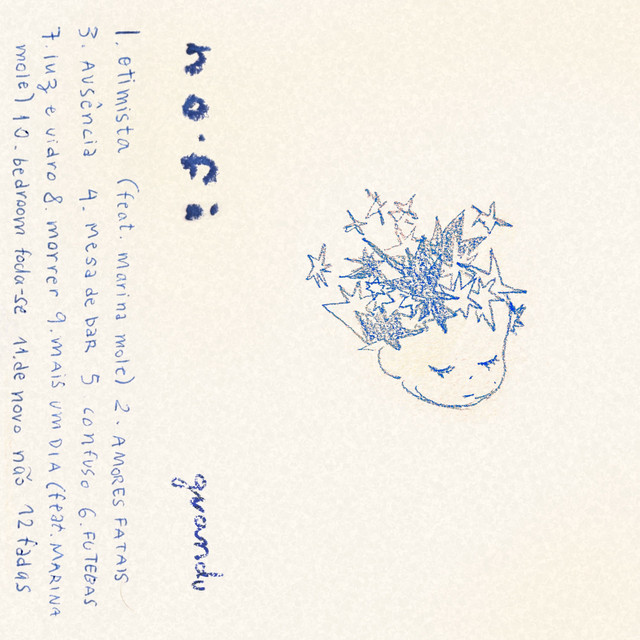 no.fi
quandu
1. otimista (feat. marina mole) 2. AMORES FATAIS
3. AUSência 4. Mesa de baR 5 confuso 6. FUTEBAS
7. luz e vidro 8. morrer 9. mAIS UM DIA (feat. MARINA
mole) 10. bedroom foda-se 11. de novo não 12 fadas